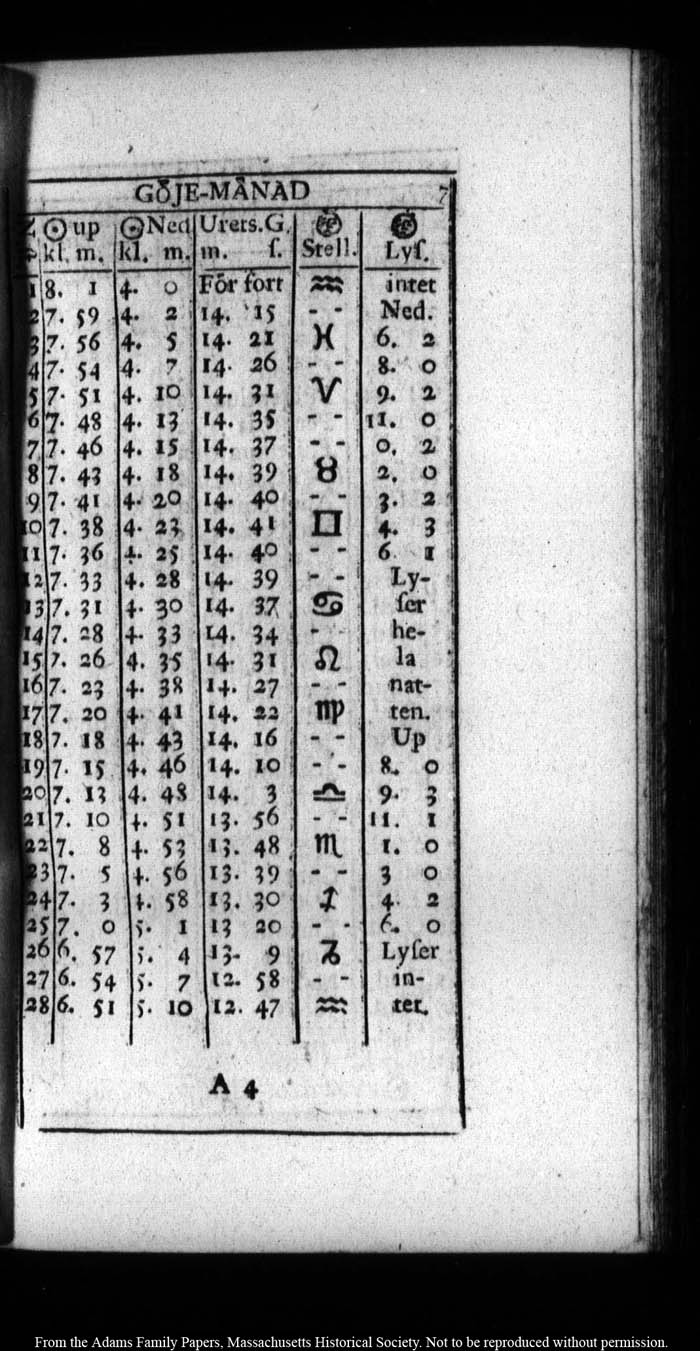 GÖJE-MÅNAD 7
☉ up ☉ Ned Urers.G.
kl. m. kl. m. m. ſ. Stell. Lyſ.
1 8. 1 4. 0 För fort ♒ intet
2 7. 59 4. 2 14. 15 - - Ned.
3 7. 56 4. 5 14. 21 ♓ 6. 2
4 7. 54 4. 7 14. 26 - - 8. 0
5 7. 51 4. 10 14. 31 ♈ 9. 2
6 7. 48 4. 13 14. 35 - - 11. 0
7 7. 46 4. 15 14. 37 - - 0. 2
8 7. 43 4. 18 14. 39 ♉ 2. 0
9 7. 41 4. 20 14. 40 - - 3. 2
10 7. 38 4. 23 14. 41 ♊ 4. 3
11 7. 36 4. 25 14. 40 - - 6. 1
12 7. 33 4. 28 14. 39 - - Ly-
13 7. 31 4. 30 14. 37 ♋ ſer
14 7. 28 4. 33 14. 34 - he-
15 7. 26 4. 35 14. 31 ♌ la
16 7. 23 4. 38 14. 27 - - nat-
17 7. 20 4. 41 14. 22 ♍ ten.
18 7. 18 4. 43 14. 16 - - Up
19 7. 15 4. 46 14. 10 - - 8. 0
20 7. 13 4. 48 14. 3 ♎ 9. 3
21 7. 10 4. 51 13. 56 - - 11. 1
22 7. 8 4. 53 13. 48 ♏ 1. 0
23 7. 5 4. 56 13. 39 - - 3 0
24 7. 3 4. 58 13. 30 ♐ 4. 2
25 7. 0 5. 1 13 20 - - 6. 0
26 6. 57 5. 4 13- 9 ♑ Lyſer
27 6. 54 5. 7 12. 58 - - in-
28 6. 51 5. 10 12. 47 ♒ tet.
A 4
From the Adams Family Papers, Massachusetts Historical Society. Not to be reproduced without permission.